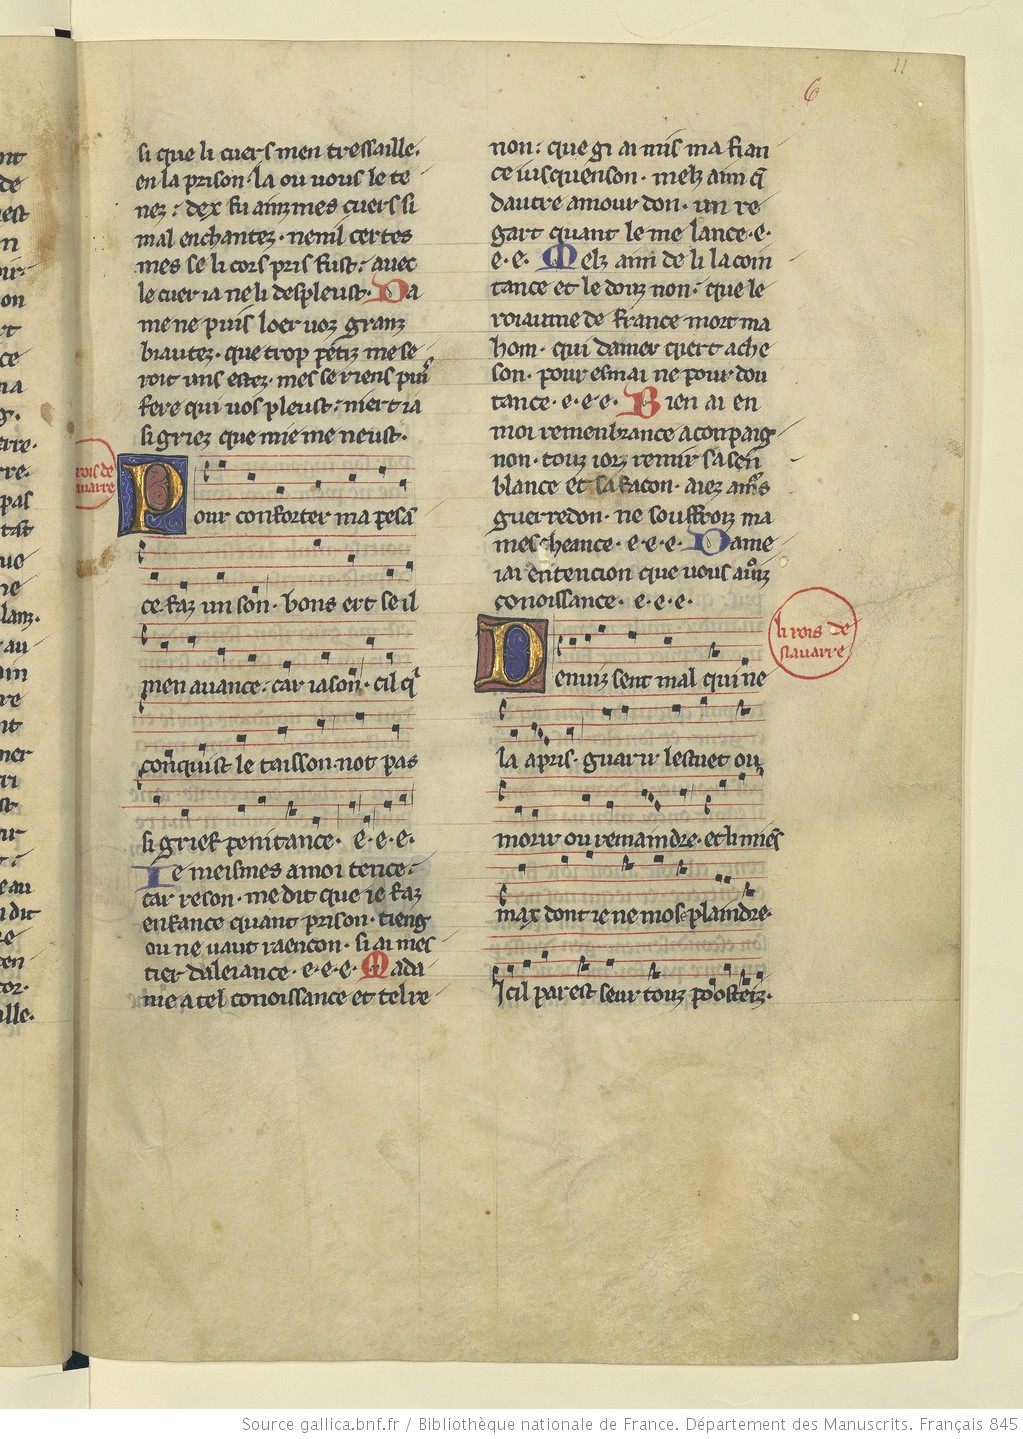 11
6
si que li cuers men tressaille.
en la prison. la ou vous le te
nez: dex fu ainz mes cuers si
mal enchantez. nenil certes
mes se li cors pris fust: avec
le cuer ia ne li despleust. Da
me ne puis loer uoz granz
biautez. que trop petiz me se
roit uns estez. mes se riens puis
fere qui uos pleust: niert ia
si griez que mie me neust.
rois de
navarre
Pour conforter ma pesã
ce faz un son. bons ert se il
men auance: car iason. cil q̃
conquist le toisson. not pas
si grief penitance. e.e.e.
Ie meismes a moi tence.
car reson. me dit que ie faz
enfance quant prison. tieng
ou ne uaut raencon. si ai mes
tier dalejance. e.e.e. Mada
me a tel conoissance et tel re
non: que gi ai mis ma fian
ce iusquenson. melz aim q̃
dautre amour don. un re
gart quant le me lance. e.
e.e. Melz aim de li lacoin
tance et le douz non: que le
roiaume de france mort ma
hom. qui damer quert ache
son. pour esmai ne pour dou
tance. e.e.e. Bien ai en
moi remenbrance a conpaig
non. touz iorz remir sa sen
blance et sa facon. aiez amors
guerredon. ne souffroiz ma
mescheance. e.e.e. Dame
iai entencion que uous auroiz
conoissance. e.e.e.
li rois de
navarre
Denuiz sent mal qui ne
la apris. guarir lestuet ou
morir ou remaindre. et li miens
max dont ie ne mose plaindre.
Icil par est seur touz poosteiz.
Source gallica.bnf.fr / Bibliothèque nationale de France. Département des Manuscrits. Français 845